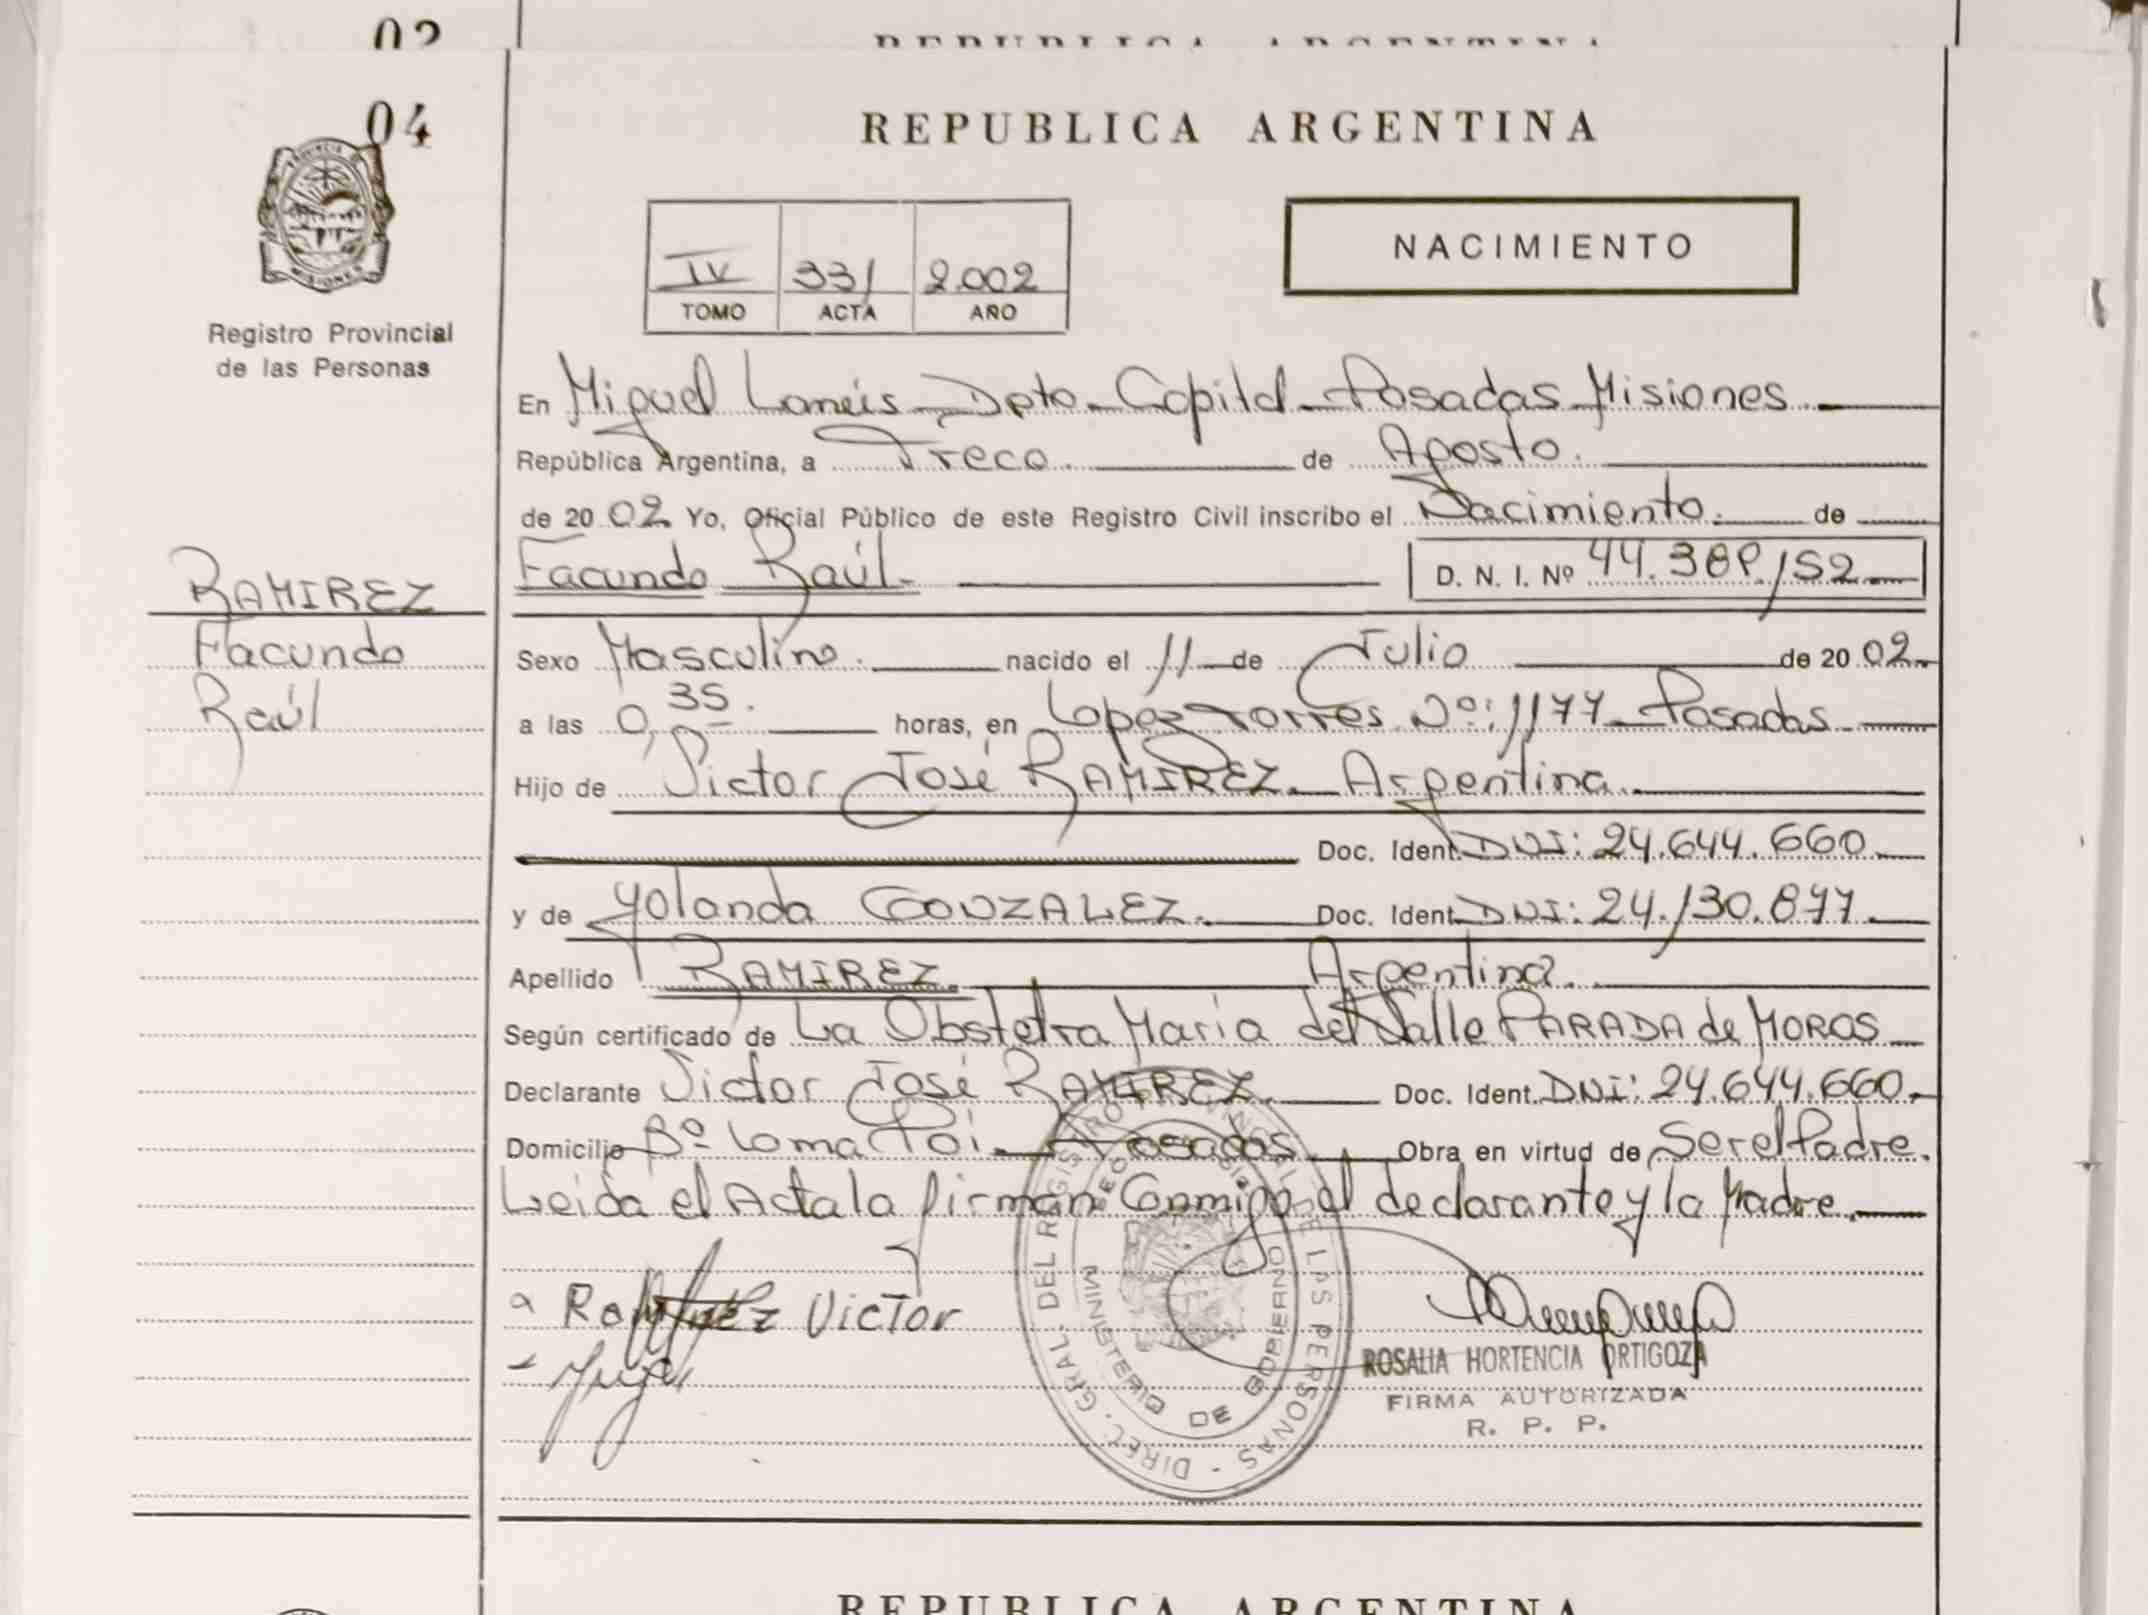 04
REPUBLICA ARGENTINA
PROVINCIA DE
MISIONES
Registro Provincial
de las Personas
NACIMIENTO
IV 331 2.002
TOMO ACTA AÑO
En Miguel Laneis Dpto Capital Posadas Misiones.
República Argentina, a Trece. de Agosto.
de 2002 Yo, Oficial Público de este Registro Civil inscribo el Nacimiento. de
RAMIREZ
Facundo
Raúl
Facundo Raúl D. N. I. Nº 44.389.152
Sexo Masculino. nacido el 11 de Julio de 2002
a las 0,35. horas, en Lopez Torres Nº: 1177 Posadas
Hijo de Victor José RAMIREZ. Argentina.
Doc. Ident. DNI: 24.644.660
y de Yolanda GONZALEZ. Doc. Ident. DNI: 24.130.877
Apellido RAMIREZ. Argentina.
Según certificado de La Obstetra María del Valle PARADA de MOROS
Declarante Victor José RAMIREZ. Doc. Ident. DNI: 24.644.660.
Domicilio Bº Loma Poi. Posadas. Obra en virtud de Ser el Padre.
Leida el Acta la firman Conmigo el declarante y la Madre.
Ramirez Victor
DIREC. GRAL. DEL REGISTRO PROVINCIAL DE LAS PERSONAS -
MINISTERIO DE GOBIERNO
ROSALIA HORTENCIA ORTIGOZA
FIRMA AUTORIZADA
R. P. P.
REPUBLICA ARGENTINA